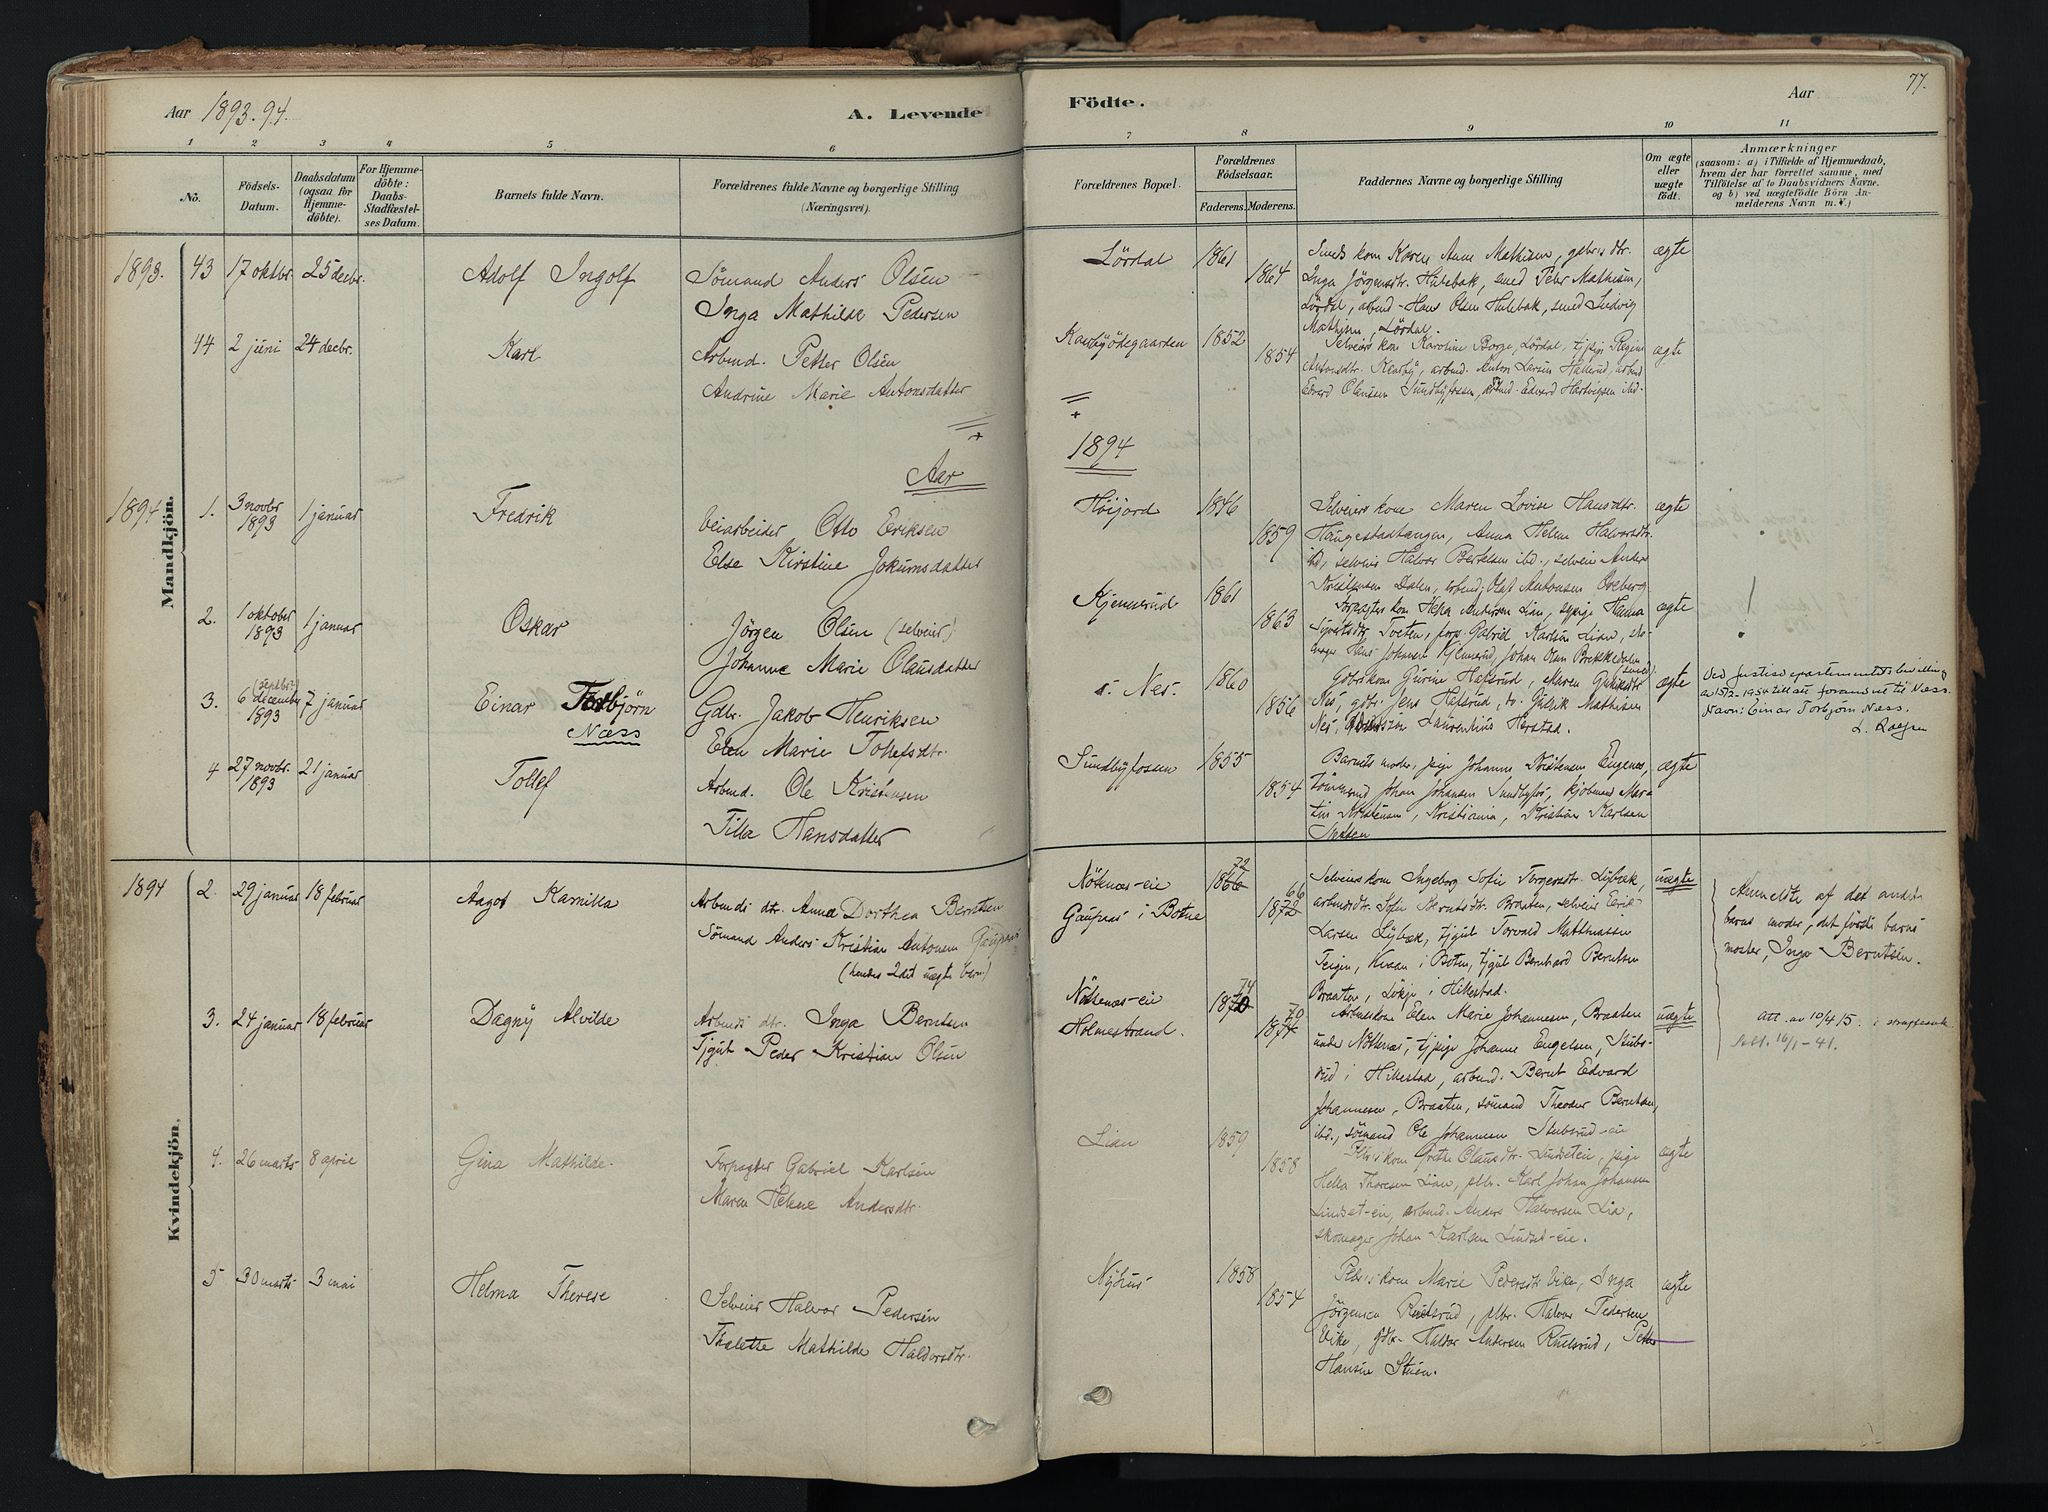 Aar 1893.94.
A. Levende
Födte.
Aar
77.
1 2 3 4 5 6 7 8 9 10 11
No.
Födsels-Datum.
Daabsdatum (ogsaa for Hjemmedöbte).
For Hjemmedöbte: Daabs-Stadfæstelses Datum.
Barnets fulde Navn.
Forældrenes fulde Navne og borgerlige Stilling
(Næringsvei).
Forældrenes Bopæl.
Forældrenes Födselsaar.
Faderens. Moderens.
Faddernes Navne og borgerlige Stilling
Om ægte eller uægte födt.
Anmærkninger
(saasom: a) i Tilfælde af Hjemmedaab,
hvem der har forrettet samme, med
Tilföielse af to Daabsvidners Navne.
og b) ved uægtefödte Börn Anmelderens Navn m. V.)
Mandkjön.
1893. 43 17 oktbr. 25 decbr. Adolf Ingolf
Sömand Anders Olsen
Inga Mathilde Pedersen
Lördal 1861 1864
Smeds kom Karen Anne Mathisen, gbrs dtr.
Inga Jörgensdtr. Hulebak, smed Peter Mathisen,
Lördal, arbmd. Hans Olsen Hulebak, smed Ludvig
Mathisen, Lördal.
ægte
44 2 juni 24 decbr. Karl
Arbmd. Petter Olsen
Andrine Marie Antonsdatter
1852 1854
Selveiers kom Karoline Borge, Lördal, tjpige Regine
Antonsdtr. Kearby, arbmd. Anton Larsen Hallerud, arbmd
Edvard Olaussen Sundbyfossen, Edvard Hartvigsen ibd.
ægte
Aar 1894
1894 1. 3 novbr 1893 1 januar Fredrik
Veiarbeider Otto Eriksen
Else Kirstine Jokumsdatter
Höijord 1846 1859
Selveiers kom Maren Lovise Hansdtr.
Hangestadtangen, Anna Helene Halvorsdtr.
ibd, selveier Halvor Berntsen ibd., selveier Anders
Kristensen Dalen, arbmd. Olaf Antonsen Oreberg
ægte
2. 1 oktober 1893 1 januar Oskar
Jörgen Olsen (selveier)
Johanne Marie Olausdatter
Kjennerud 1861 1863
Forpagter kom Helga Andersen Lian, tjpige Hanna
Sjversdtr. Tveten, forp. Gabriel Karlsen Lian, sko-
mager Hans Johansen Kjennerud, Johan Olsen
ægte
3. 6 december (septbr?) 1893 7 januar Einar Torbjörn
Næss
Gdbr. Jakob Henriksen
Elen Marie Tollefsdtr.
s. Nes. 1860 1856
Gdbrs kom Gurine Hafsrud, Maren Gulliksdtr
Nes, gdbr. Jens Hafsrud, do. Gullik Mathisen
Nes, Laurentius Herstad.
ægte
Ved Justisdepartementets bevilling
av 15/2 1934 till att forandret til Næss.
Navn: Einar Torbjørn Næss.
4 27 novbr. 1893 21 januar Tollef
Arbmd. Ole Kristensen
Tilla Hansdatter
Sundbyfossen 1855 1854
Barnets moder, pige Johanne Kristensen Engenes,
Tömmermd Johan Johansen Sundbyfos, kjöbmand Mar-
tin Kristensen, Kristiania, Kristian Karlsen
ægte
Kvindekjön.
1894 2. 29 januar 18 februar Aagot Kamilla
Arbmds dtr. Anna Dorthea Berntsen
Sömand Anders Kristian Antonsen Gaupaas
(hendes 2det uægte barn)
Nötenæs-eie
Gaupaas i Botne
1866 72 1872 66
Selveiers kom Ingeborg Sofie Torgersdtr. Lybæk,
arbmdsdtr. Sofie Berntsdtr. Braaten, selveier Eerik
Larsen Lybæk, tjgut Torvald Matthiassen
Teigen, Kvaan i Boten, tjgut Bernhard Berntsen
Braaten, Lökje i Hillestad.
uægte
Anmeldte af det andet
barns moder, det förste barns
moster, Inga Berntsen.
3. 24 januar 18 februar Dagny Alvilde
Arbmds dtr. Inga Berntsen
Tjgut Peder Kristian Olsen
Nötenæs-eie
Holmestrand.
1870 74 1874 70
Arbmds kom Elen Marie Johannesen, Braaten
under Nötenæs, tjpige Johanne Engelsen, Stubs-
rud i Hillestad, arbmd. Bernt Edvard
Johannesen, Braaten, sömand Theodor Berntsen,
ibd., sömand Ole Johannesen Stubsrud-eie
uægte
Att. av 10/4 15.
Att. 16/1-41.
4. 26 marts 8 april Gina Mathilde.
Forpagter Gabriel Karlsen
Maren Helene Andersdtr.
Lian 1859 1858
Plbrs kom Grethe Olausdtr. Lindset-eie, pige
Hella Thoresen Lian, plbr. Karl Johan Johansen
Lindset-eie, arbmd. Anders Halvorsen Lia,
skomager Johan Karlsen Lindset-eie.
ægte
5 30 marts 3 mai Helma Therese
Selveier Halvor Pedersen
Thalette Mathilde Haldorsdtr.
Nyhus 1858 1854
Plbrs kom Marie Pedersdtr Vike, Inga
Jörgensen Ruelsrud, plbr. Halvor Pedersen
Vike, gdbr. Haldor Andersen Ruelsrud, Petter
Hansen Stuen.
ægte